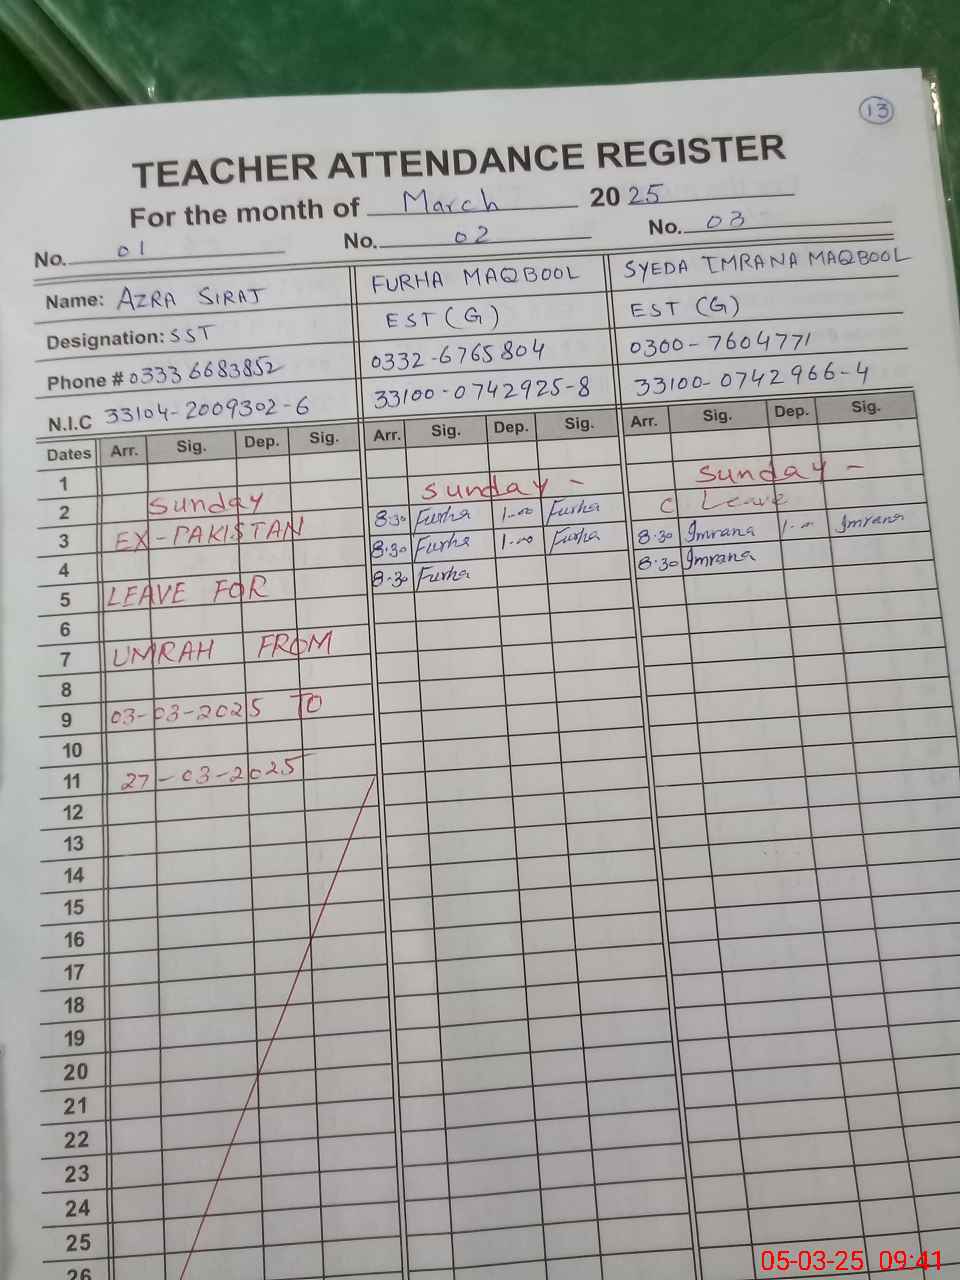 13
TEACHER ATTENDANCE REGISTER
For the month of March 2025
No. 01 No. 02 No. 03
Name: AZRA SIRAJ FURHA MAQBOOL SYEDA IMRANA MAQBOOL
Designation: SST EST (G) EST (G)
Phone # 03336683852 0332-6765804 0300-7604771
N.I.C 33104-2009302-6 33100-0742925-8 33100-0742966-4
Dates Arr. Sig. Dep. Sig. Arr. Sig. Dep. Sig. Arr. Sig. Dep. Sig.
1
2 Sunday Sunday - Sunday -
3 EX-PAKISTAN 8:30 Furha 1-00 Furha C Leave
4 8:30 Furha 1-00 Furha 8:30 Imrana 1-00 Imrana
5 LEAVE FOR 8:30 Furha 8:30 Imrana
6
7 UMRAH FROM
8
9 03-03-2025 TO
10
11 27-03-2025
12
13
14
15
16
17
18
19
20
21
22
23
24
25
26
05-03-25 09:41